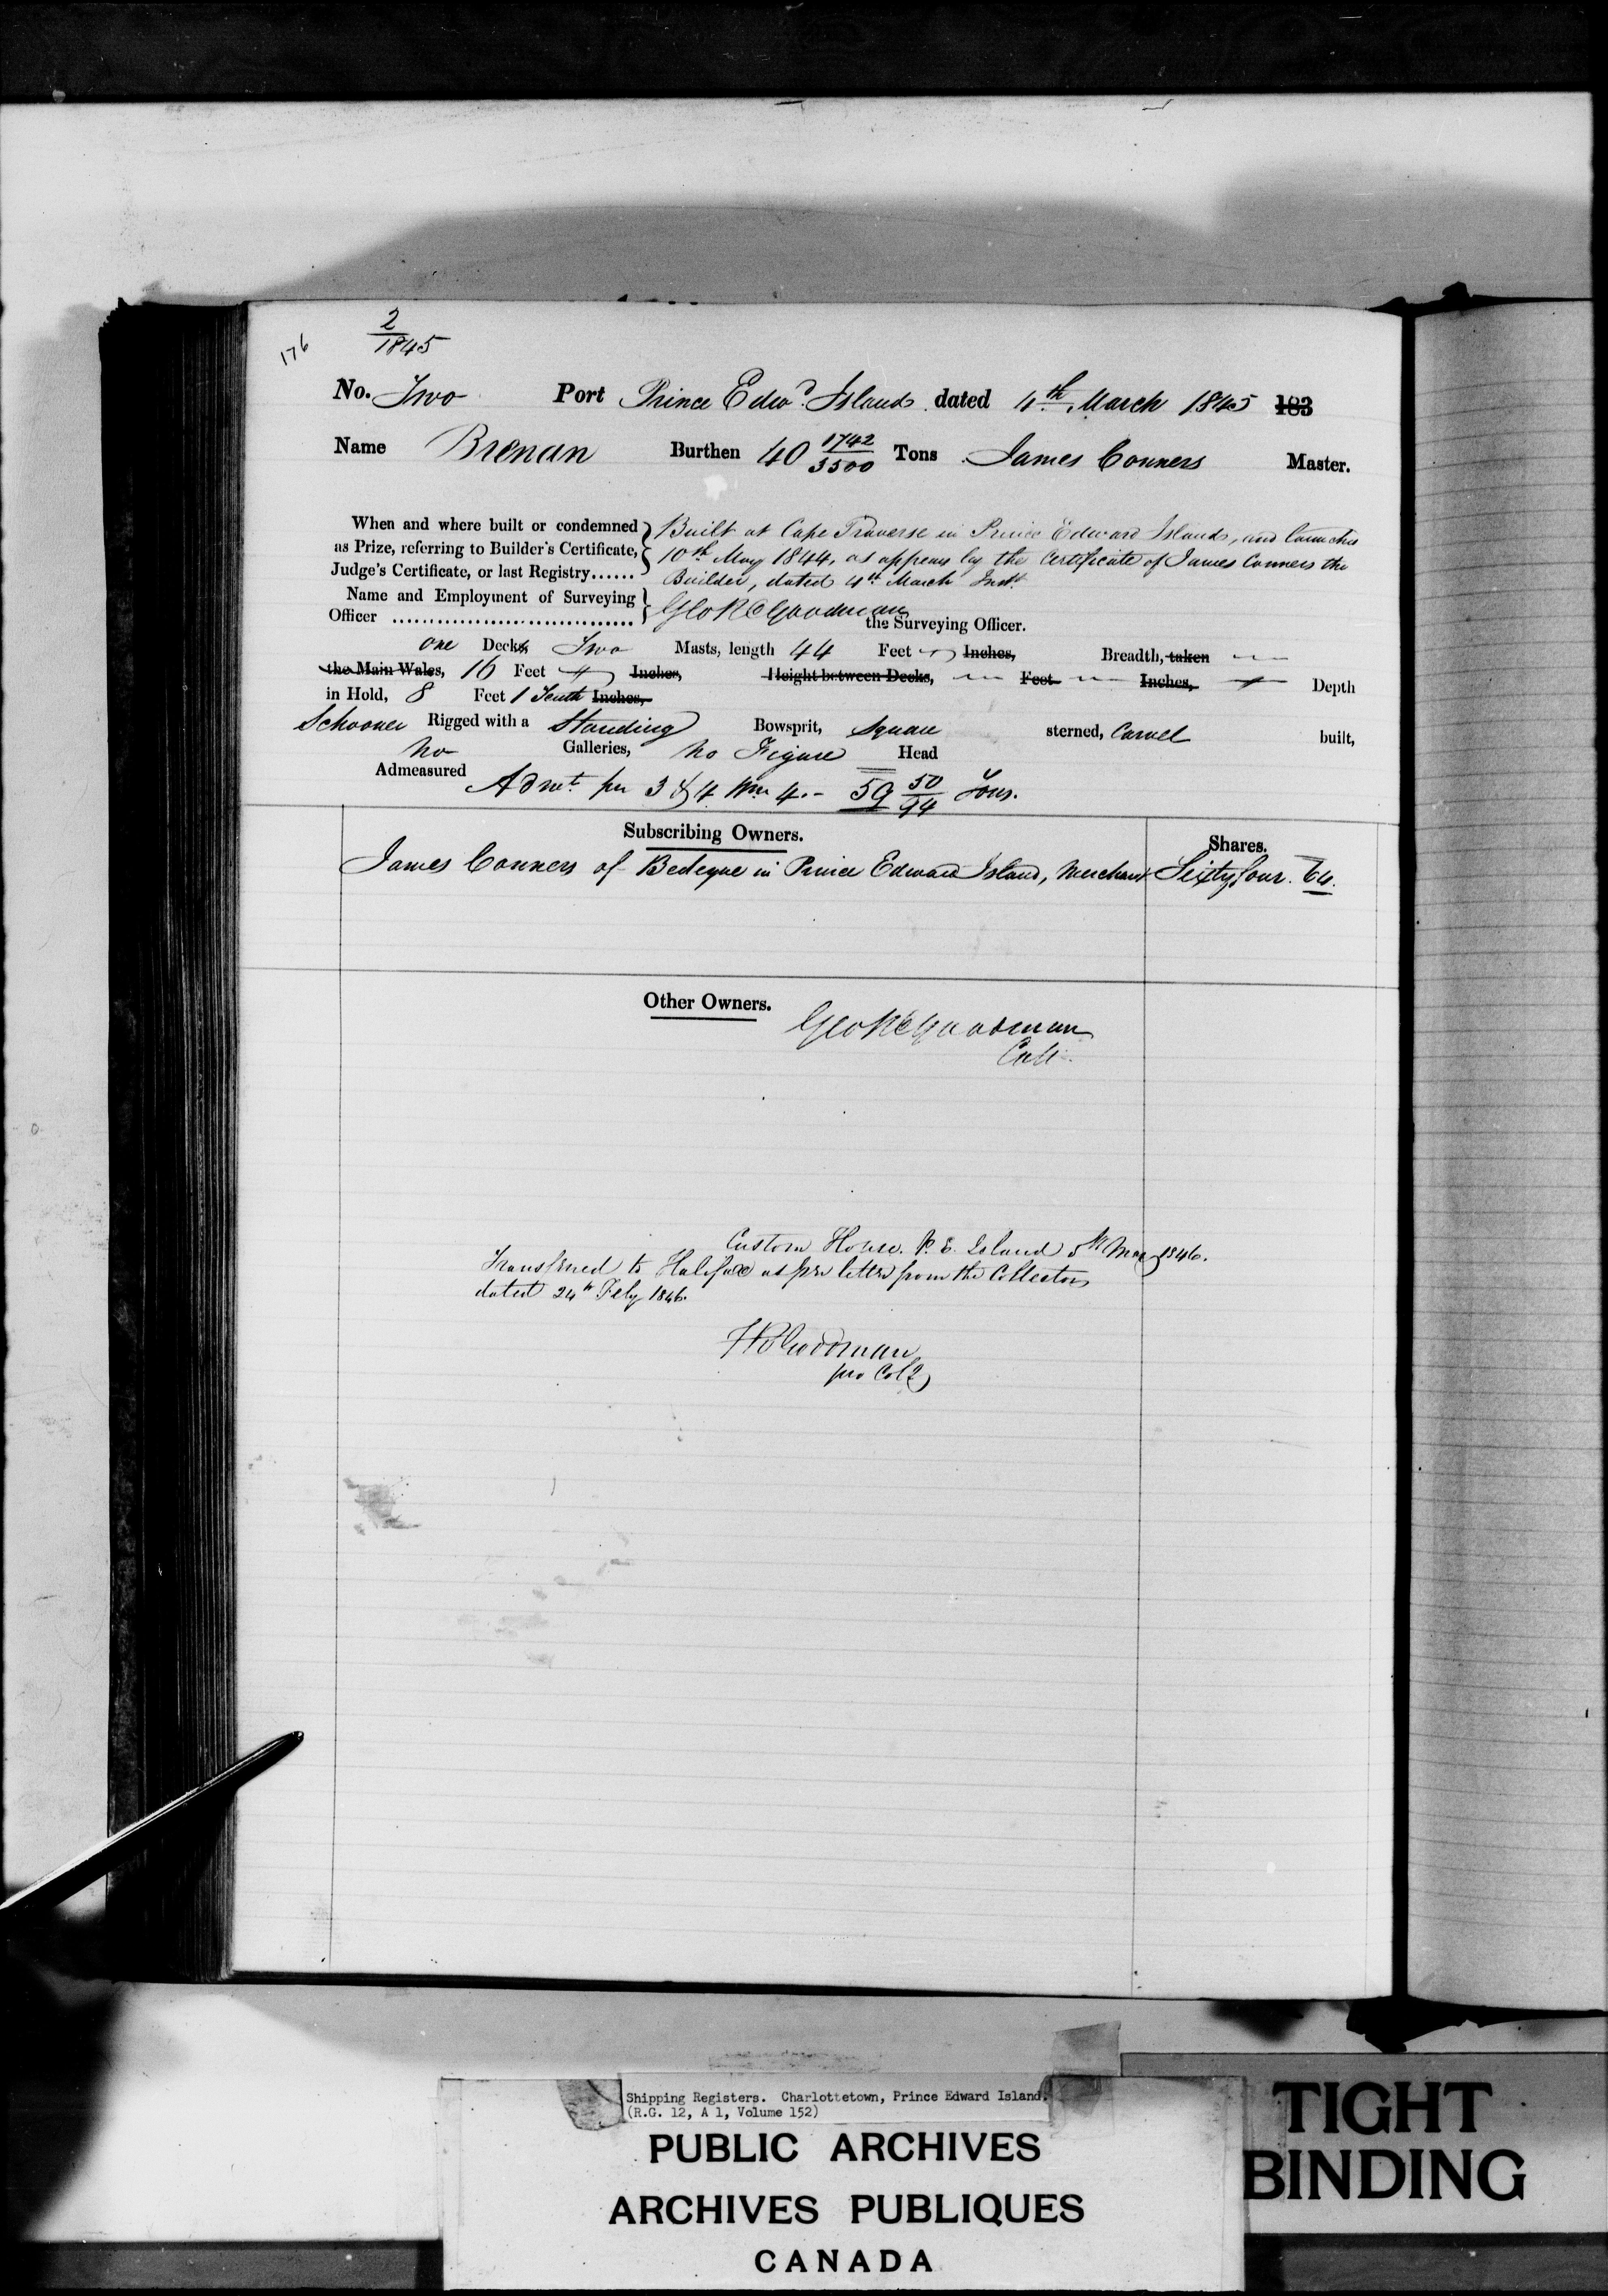 176
2
1845
No. Two Port Prince Edwd. Island dated 4th March 1845 183
Name Brenan Burthen 40 1742/3500 Tons James Conners Master.
When and where built or condemned } Built at Cape Traverse in Prince Edward Island, and launched
as Prize, referring to Builder's Certificate, 10th May 1844, as appears by the Certificate of James Conners the
Judge's Certificate, or last Registry...... Builder, dated 4th March Inst.
Name and Employment of Surveying } Geo R Goodman
Officer ................................. the Surveying Officer.
one Decks Two Masts, length 44 Feet Inches, Breadth, taken
the Main Wales, 16 Feet Inches, Height between Decks, Feet Inches, Depth
in Hold, 8 Feet 1 Tenth Inches,
Schooner Rigged with a Standing Bowsprit, Square sterned, Carvel built,
No Galleries, No Figure Head
Admeasured
Admt. per 3 & 4 Wm 4.- 59 50/94 Tons.
Subscribing Owners. Shares.
James Conners of Bedeque in Prince Edward Island, Merchant Sixty four. 64.
Other Owners.
Geo R Goodman
Custom House. P. E. Island 5th May 1846.
Transferred to Halifax as per letter from the Collector
dated 24th Feby 1846.
Goodman
pro Colr
Shipping Registers. Charlottetown, Prince Edward Island.
(R.G. 12, A 1, Volume 152)
PUBLIC ARCHIVES
ARCHIVES PUBLIQUES
CANADA
TIGHT
BINDING